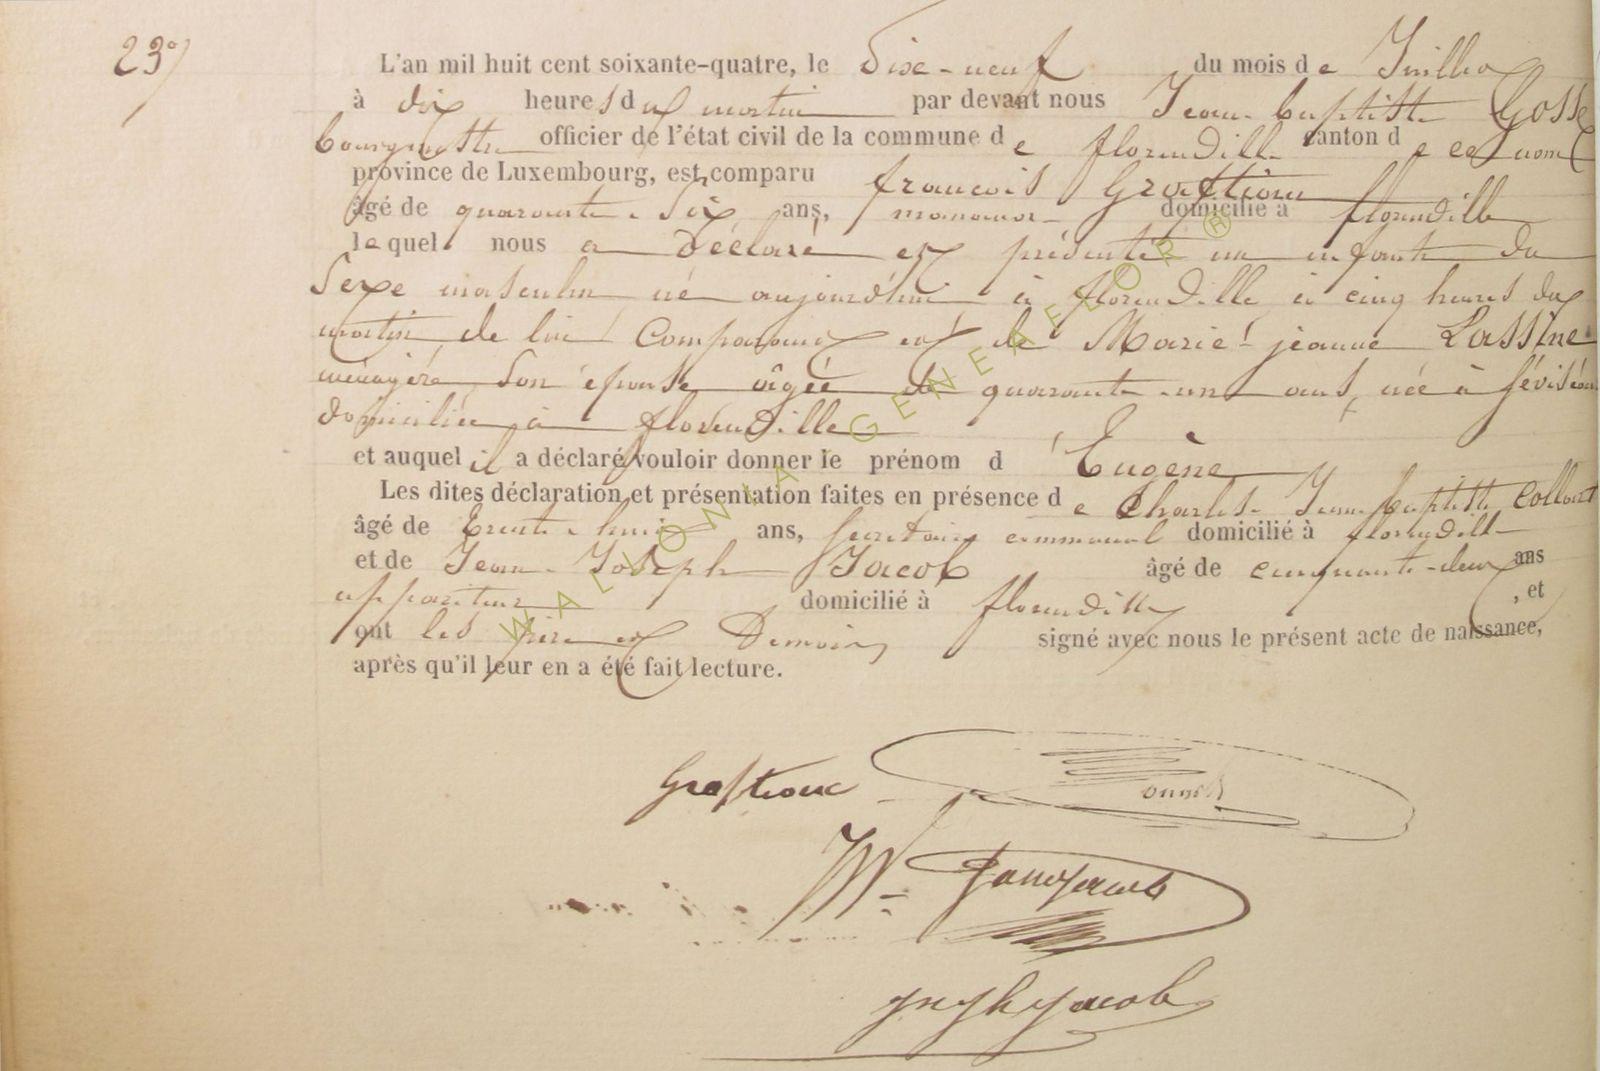 23°/
L'an mil huit cent soixante-quatre, le Dix-neuf du mois de Juillet
à dix heures du matin par devant nous Jean-baptiste Gosse
bourgmestre officier de l'état civil de la commune de florenville canton de ce nom
province de Luxembourg, est comparu francois Groftionc
âgé de quarante-Six ans, manoeuvre domicilié à florenville
lequel nous a déclaré et présenté un enfant du
Sexe masculin né aujourd'hui à florenville à cinq heures du
matin de lui Comparant et de Marie-jeanne Lassine
ménagère Son épouse âgée de quarante-un ans, née à
domiciliée à florenville
et auquel il a déclaré vouloir donner le prénom d' Eugène
Les dites déclaration et présentation faites en présence de Charles-Jean-baptiste Collaut
âgé de trente-huit ans, Secrétaire communal domicilié à florenville
et de Jean-Joseph Jacob âgé de cinquante-deux ans
appariteur domicilié à florenville, et
ont les père et témoins signé avec nous le présent acte de naissance,
après qu'il leur en a été fait lecture.
WALLONIA - GENEALOR®